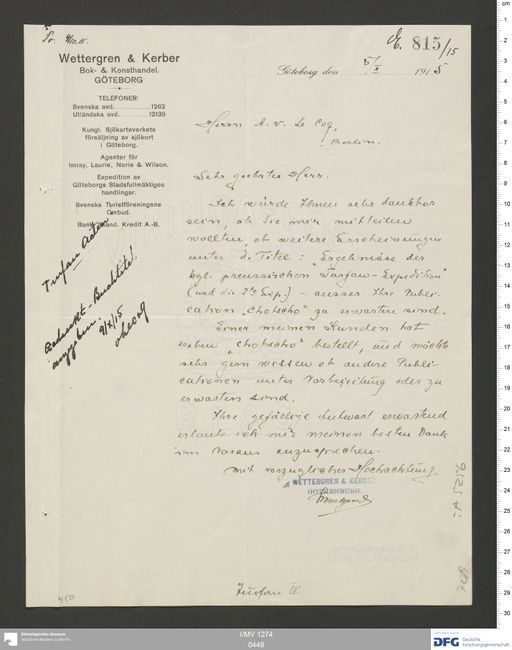 Pr. 9/10.15.
E. 815/15
Wettergren & Kerber
Bok- & Konsthandel.
GÖTEBORG
TELEFONER:
Svenska avd. 1262
Utländska avd. 12139
Kungl. Sjökarteverkets
försäljning av sjökort
i Göteborg.
Agenter för
Imray, Laurie, Norie & Wilson.
Expedition av
Göteborgs Stadsfullmäktiges
handlingar.
Svenska Turistföreningens
Ombud.
Bank: Skand. Kredit A.-B.
Göteborg den 5/X 1915
Herrn A. v. Le Coq,
Berlin.
Sehr geehrter Herr.
Ich würde Ihnen sehr dankbar
sein, ob Sie mir mitteilen
wollten, ob weitere Erscheinungen
unter d. Titel: "Ergebnisse der
kgl. preussischen "Turfan-Expedition"
(und die 2te Exp.) - ausser Ihre Publi-
cation "Chotscho" zu erwarten sind.
Einer meinen Kunden hat
"Chotscho" bestellt, und möchte
sehr gern wissen ob andere Publi-
cationen unter Vorbereitung oder zu
erwarten sind.
Ihre gefällige Antwort erwartend
erlaube ich mir meinen besten Dank
im Voraus auszusprechen.
Mit vorzüglicher Hochachtung.
WETTERGREN & KERBER
GOTHENBURG
Turfan Acten
angeben.
9/X/15
Turfan IV
450
I/MV 1274
0449
Ethnologisches Museum
Staatliche Museen zu Berlin
DFG Deutsche
Forschungsgemeinschaft